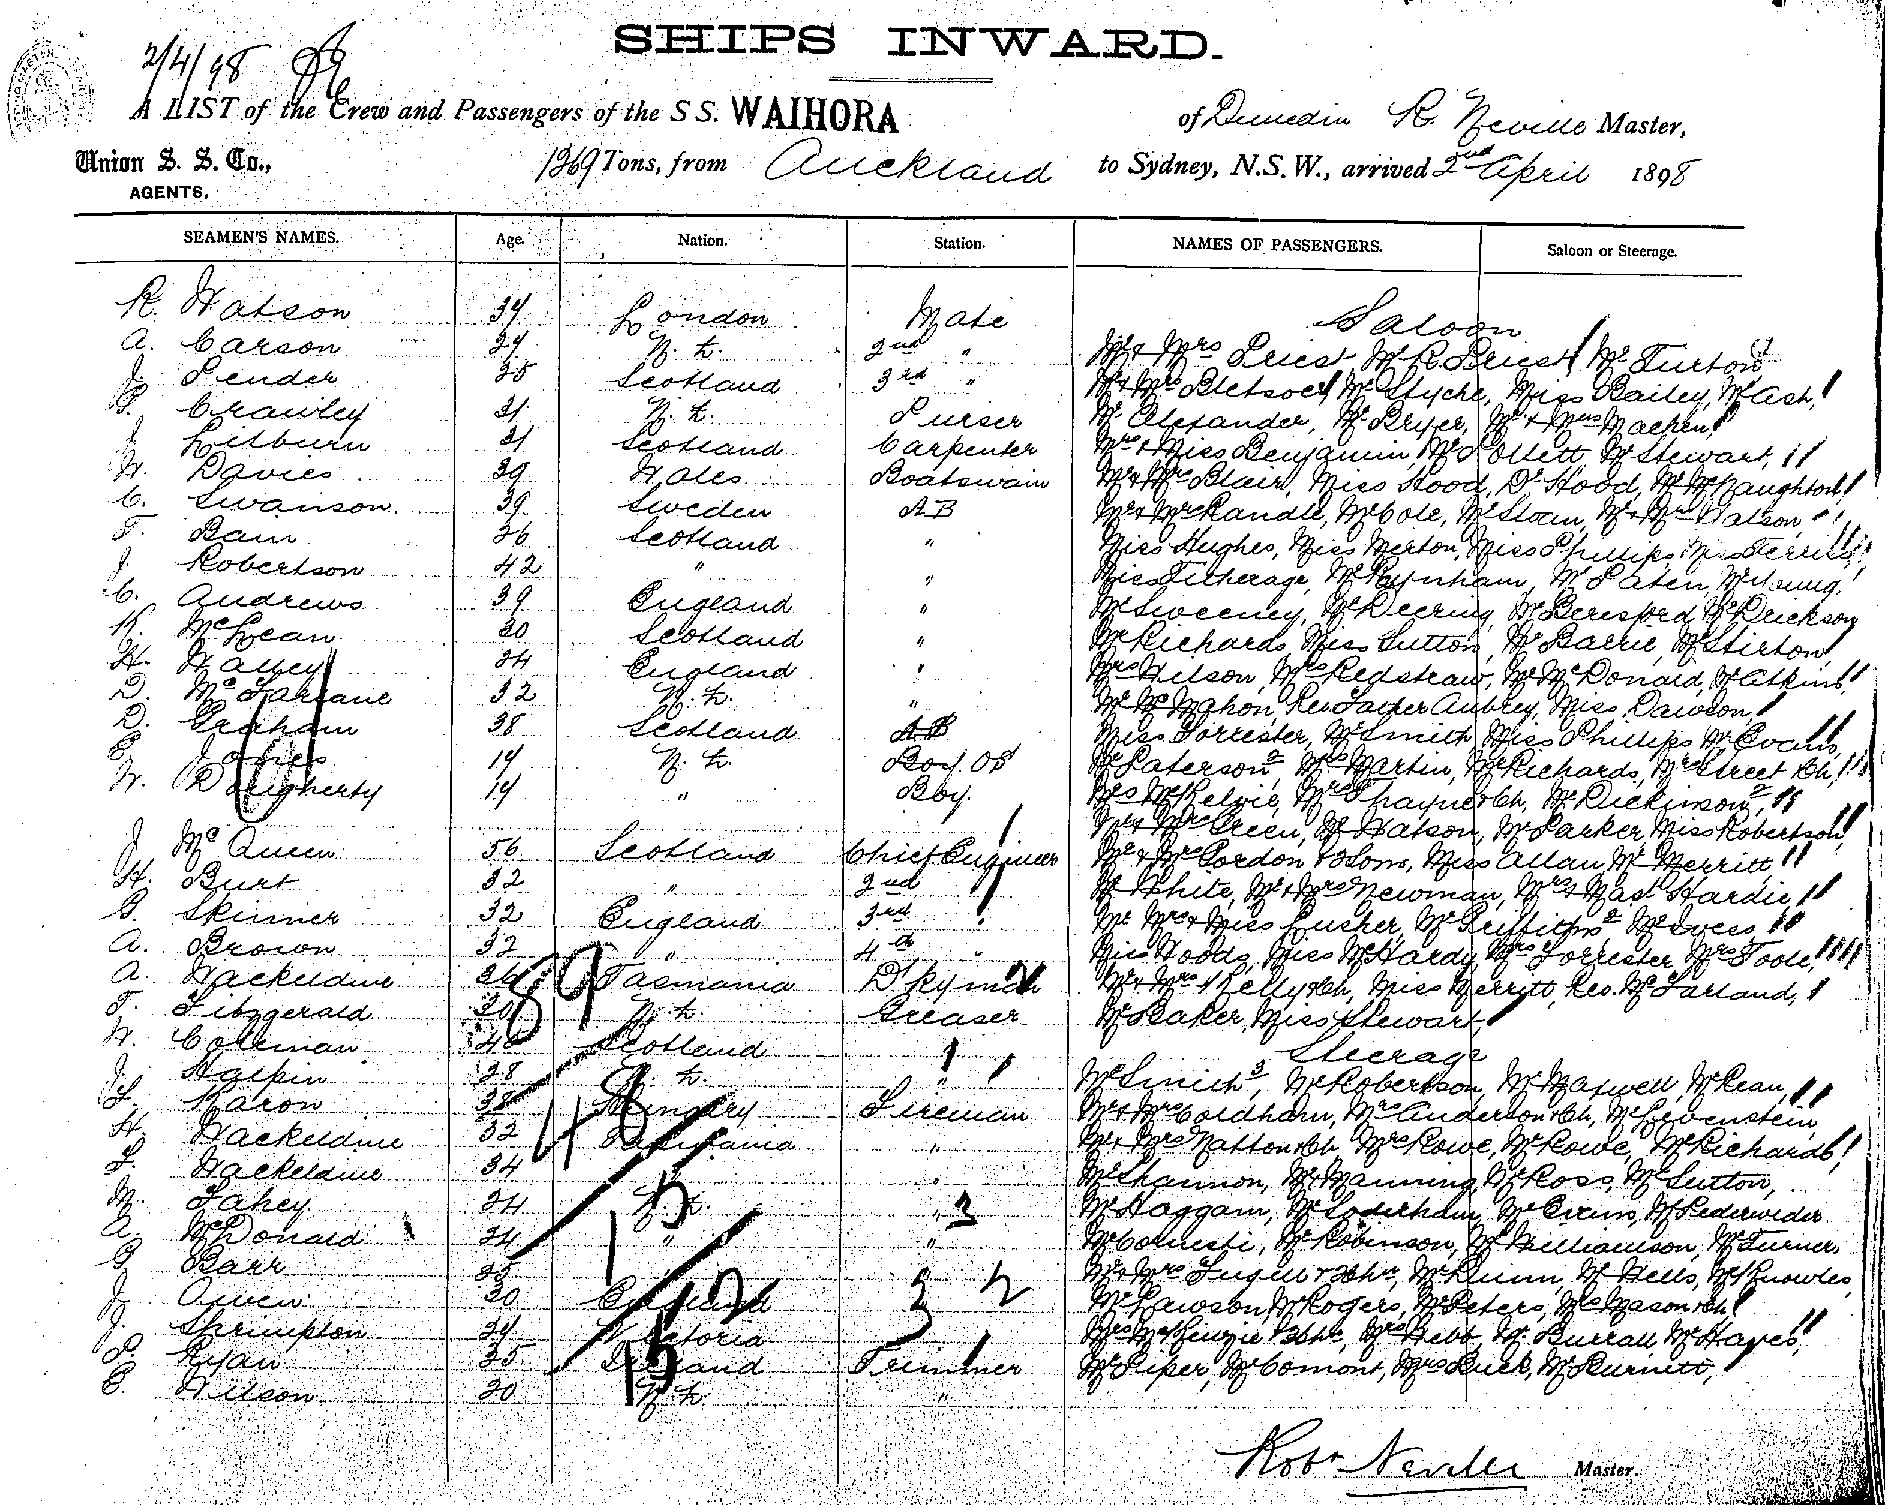 SHIPS INWARD.
2/4/98
A LIST of the Crew and Passengers of the S S. WAIHORA of Dunedin R. Neville Master,
Union S. S. Co., AGENTS. 1269 Tons, from Auckland to Sydney, N.S.W., arrived 2nd April 1898
SEAMEN'S NAMES. Age. Nation. Station. NAMES OF PASSENGERS. Saloon or Steerage.
R. Watson 34 London Mate
A. Carson 24 N. Z. 2nd "
J. Pender 25 Scotland 3rd "
Crawley 21 N. Z. Purser
J. Lilburn 21 Scotland Carpenter
W. Davies 39 Wales Boatswain
C. Swanson 39 Sweden AB
T. Bain 26 Scotland "
J. Robertson 42 " "
C. Andrews 39 England "
K. McLean 30 Scotland "
H. 24 England "
D. McFarlane 32 N. Z. "
D. Graham 38 Scotland AB
Jones 19 N. Z. Boy. OS
W. Dougherty 19 " Boy.
J. McQueen 56 Scotland Chief Engineer
H. Burt 32 " 2nd "
G. Skinner 32 England 3rd "
A. Brown 32 " 4th "
A. Hackeldine 36 Tasmania Dkyman
T. Fitzgerald 30 N. Z. Greaser
W. Coleman Scotland "
J. Halpin 28 N. Z. "
Karon 38 Fireman
H. Hackeldine 32 Tasmania "
Hackeldine 34 "
M. Fahey 24 N. Z. "
A. McDonald 24 " "
G. Barr 25
J. Owen 30 England
J. Shrimpton 24 Victoria
P. Ryan 25 Ireland Trimmer
E. Wilson 20 N. Z. "
Saloon
Mr & Mrs Priest Mr R. Priest Mr Turton
Mr & Mrs Mr Styche, Miss Bailey, Mr Ash,
Mr Alexander, Mr Bryer, Mr & Mrs Machen
Mrs & Miss Benjamin, Mr Pollett, Mr Stewart,
Mr & Mrs Blair, Miss Hood, Dr Hood, Mr McNaughton
Mr & Mrs Randle, Mr Cole, Mr Sloan, Mr & Mrs Watson
Miss Hughes, Miss Merton, Miss Phillips, Miss
Miss Titherage, Mr Raynham, Mr Paten, Mr Young.
Mr Sweeney, Mr Deering, Mr Beresford, Mr Erickson
Mr Richards, Miss Sutton, Mr Barrie, Mr Stirton
Mrs Wilson, Mrs Redstraw, Mr McDonald, Mr Atkins,
Mr McMahon, Rev Father Aubrey, Miss Dawson,
Miss Forrester, Mr Smith Miss Phillips Mr Evans,
Mr Paterson 2, Mrs Martin, Mr Richards, Mrs Street & Ch,
Mrs McKelvie, Mrs & Ch, Mr Dickinson 2,
Mr & Mrs Green, Mr Watson, Mr Parker, Miss Robertson,
Mr & Mrs Gordon & 3 Sons, Miss Allan Mr Merritt,
Mr White, Mr & Mrs Newman, Mrs & Mast Hardie,
Mr Mrs & Miss Lusher, Mr Griffiths 2 Mr Ivess,
Miss Woods, Miss McHardy, Mrs Forrester, Mrs Toole,
Mr & Mrs Kelly & Ch, Miss Merritt, Rev. McFarland,
Mr Baker, Miss Stewart,
Steerage
Mr Smith 3, Mr Robertson, Mr Maxwell, Mr Kean,
Mr & Mrs Coldham, Mrs Anderson & Ch, Mr Levenstein,
Mr & Mrs Natton & Ch, Mrs Rowe, Mr Rowe, Mr Richards,
Mr Shannon, Mr Manning, Mr Ross, Mr Sutton,
Mr Haggan, Mr
Mr Robinson, Mr Williamson, Mr Turner,
Mr & Mrs Mr Wells, Mr Knowles,
Mr Lawson, Mr Rogers, Mr Peters, Mrs Mason & Ch
Mrs McKenzie & 2 Chn, Mrs Webb, Mr Burrall, Mr Hayes,
Mr Piper, Mr Comont, Mrs Buck, Mr Burnett,
Robt Neville Master.